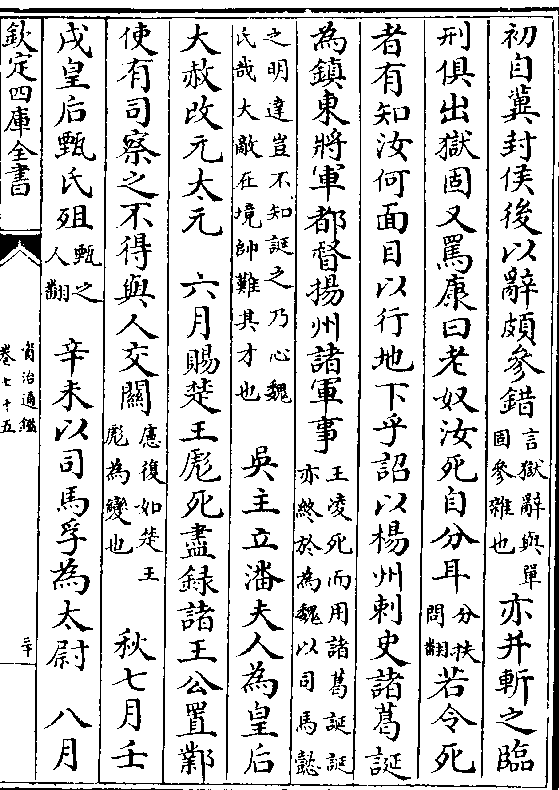 初自冀封侯後以辭頗參錯言獄辭與單固參雜也亦并斬之臨
刑俱出獄固又罵康曰老奴汝死自分耳分扶問翻若令死
者有知汝何面目以行地下乎詔以楊州刺史諸葛誕
為鎮東將軍都督揚州諸軍事王凌死而用諸葛誕誕亦終於為魏以司馬懿
之明達豈不知誕之乃心魏氏哉大敵在境帥難其才也 吳主立潘夫人為皇后
大赦改元太元 六月賜楚王彪死盡録諸王公置鄴
使有司察之不得與人交關應復如楚王彪為變也 秋七月壬
戌皇后甄氏殂甄之人翻 辛未以司馬孚為太尉 八月
欽定四庫全書
資治通鑑
卷七十五
三十